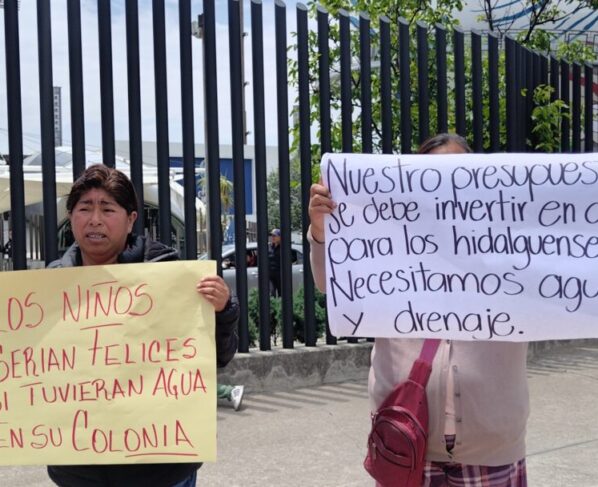 LOS NIÑOS
SERIAN FELICES
SI TUVIERAN AGUA
EN SU COLONIA
Nuestro
se debe invertir en
para los
Necesitamos
y drenaje.